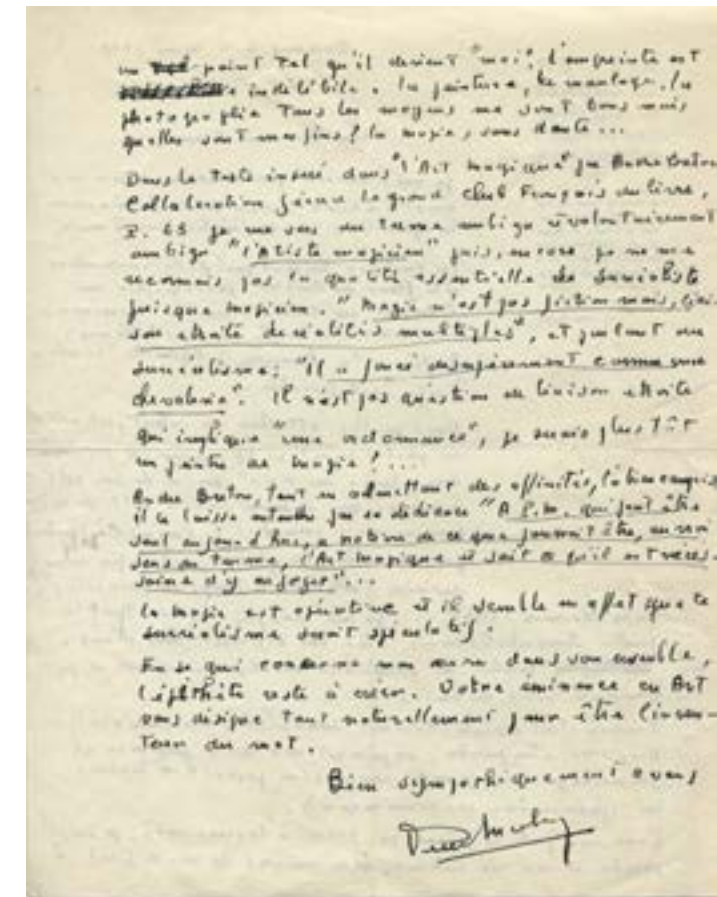 un point tel qu'il devient "moi", l'empreinte est
indélébile. la peinture, le moulage, la
photographie Tous les moyens me sont bons mais
quelles sont mes fins? la magie, sans doute...
Dans le Texte inséré dans "l'Art magique" par André Breton
Collaboration Gérard Legrand Club Français du livre,
P. 63 je me sers du terme ambigu
ambigu "l'Artiste magicien" puis, encore je ne me
reconnais pas la qualité essentielle de surréaliste
puisque magicien. "Magie n'est pas fiction mais,
son étroite de réalités multiples", et parlant du
surréalisme; "il a joué comme une
chevalerie". Il n'est pas question de liaison étroite
qui implique "une ordonnance", je serais plus Tôt
un peintre de magie!...
André Breton, tout en admettant des affinités, l'a bien compris
il le laisse entendre par sa dédicace "A P.M. qui peut être
seul aujourd'hui, a notion de ce que pouvait être, au vrai
sens du terme, l'Art magique et sait ce qu'il est néces-
saire d'y "...
la magie est opérative et il semble en effet que le
surréalisme soit spéculatif.
En ce qui concerne mon œuvre dans son ensemble,
l'épithète reste à créer. Votre éminence en Art
vous désigne tout naturellement pour être l'inven-
Teur du mot.
Bien sympathiquement à vous